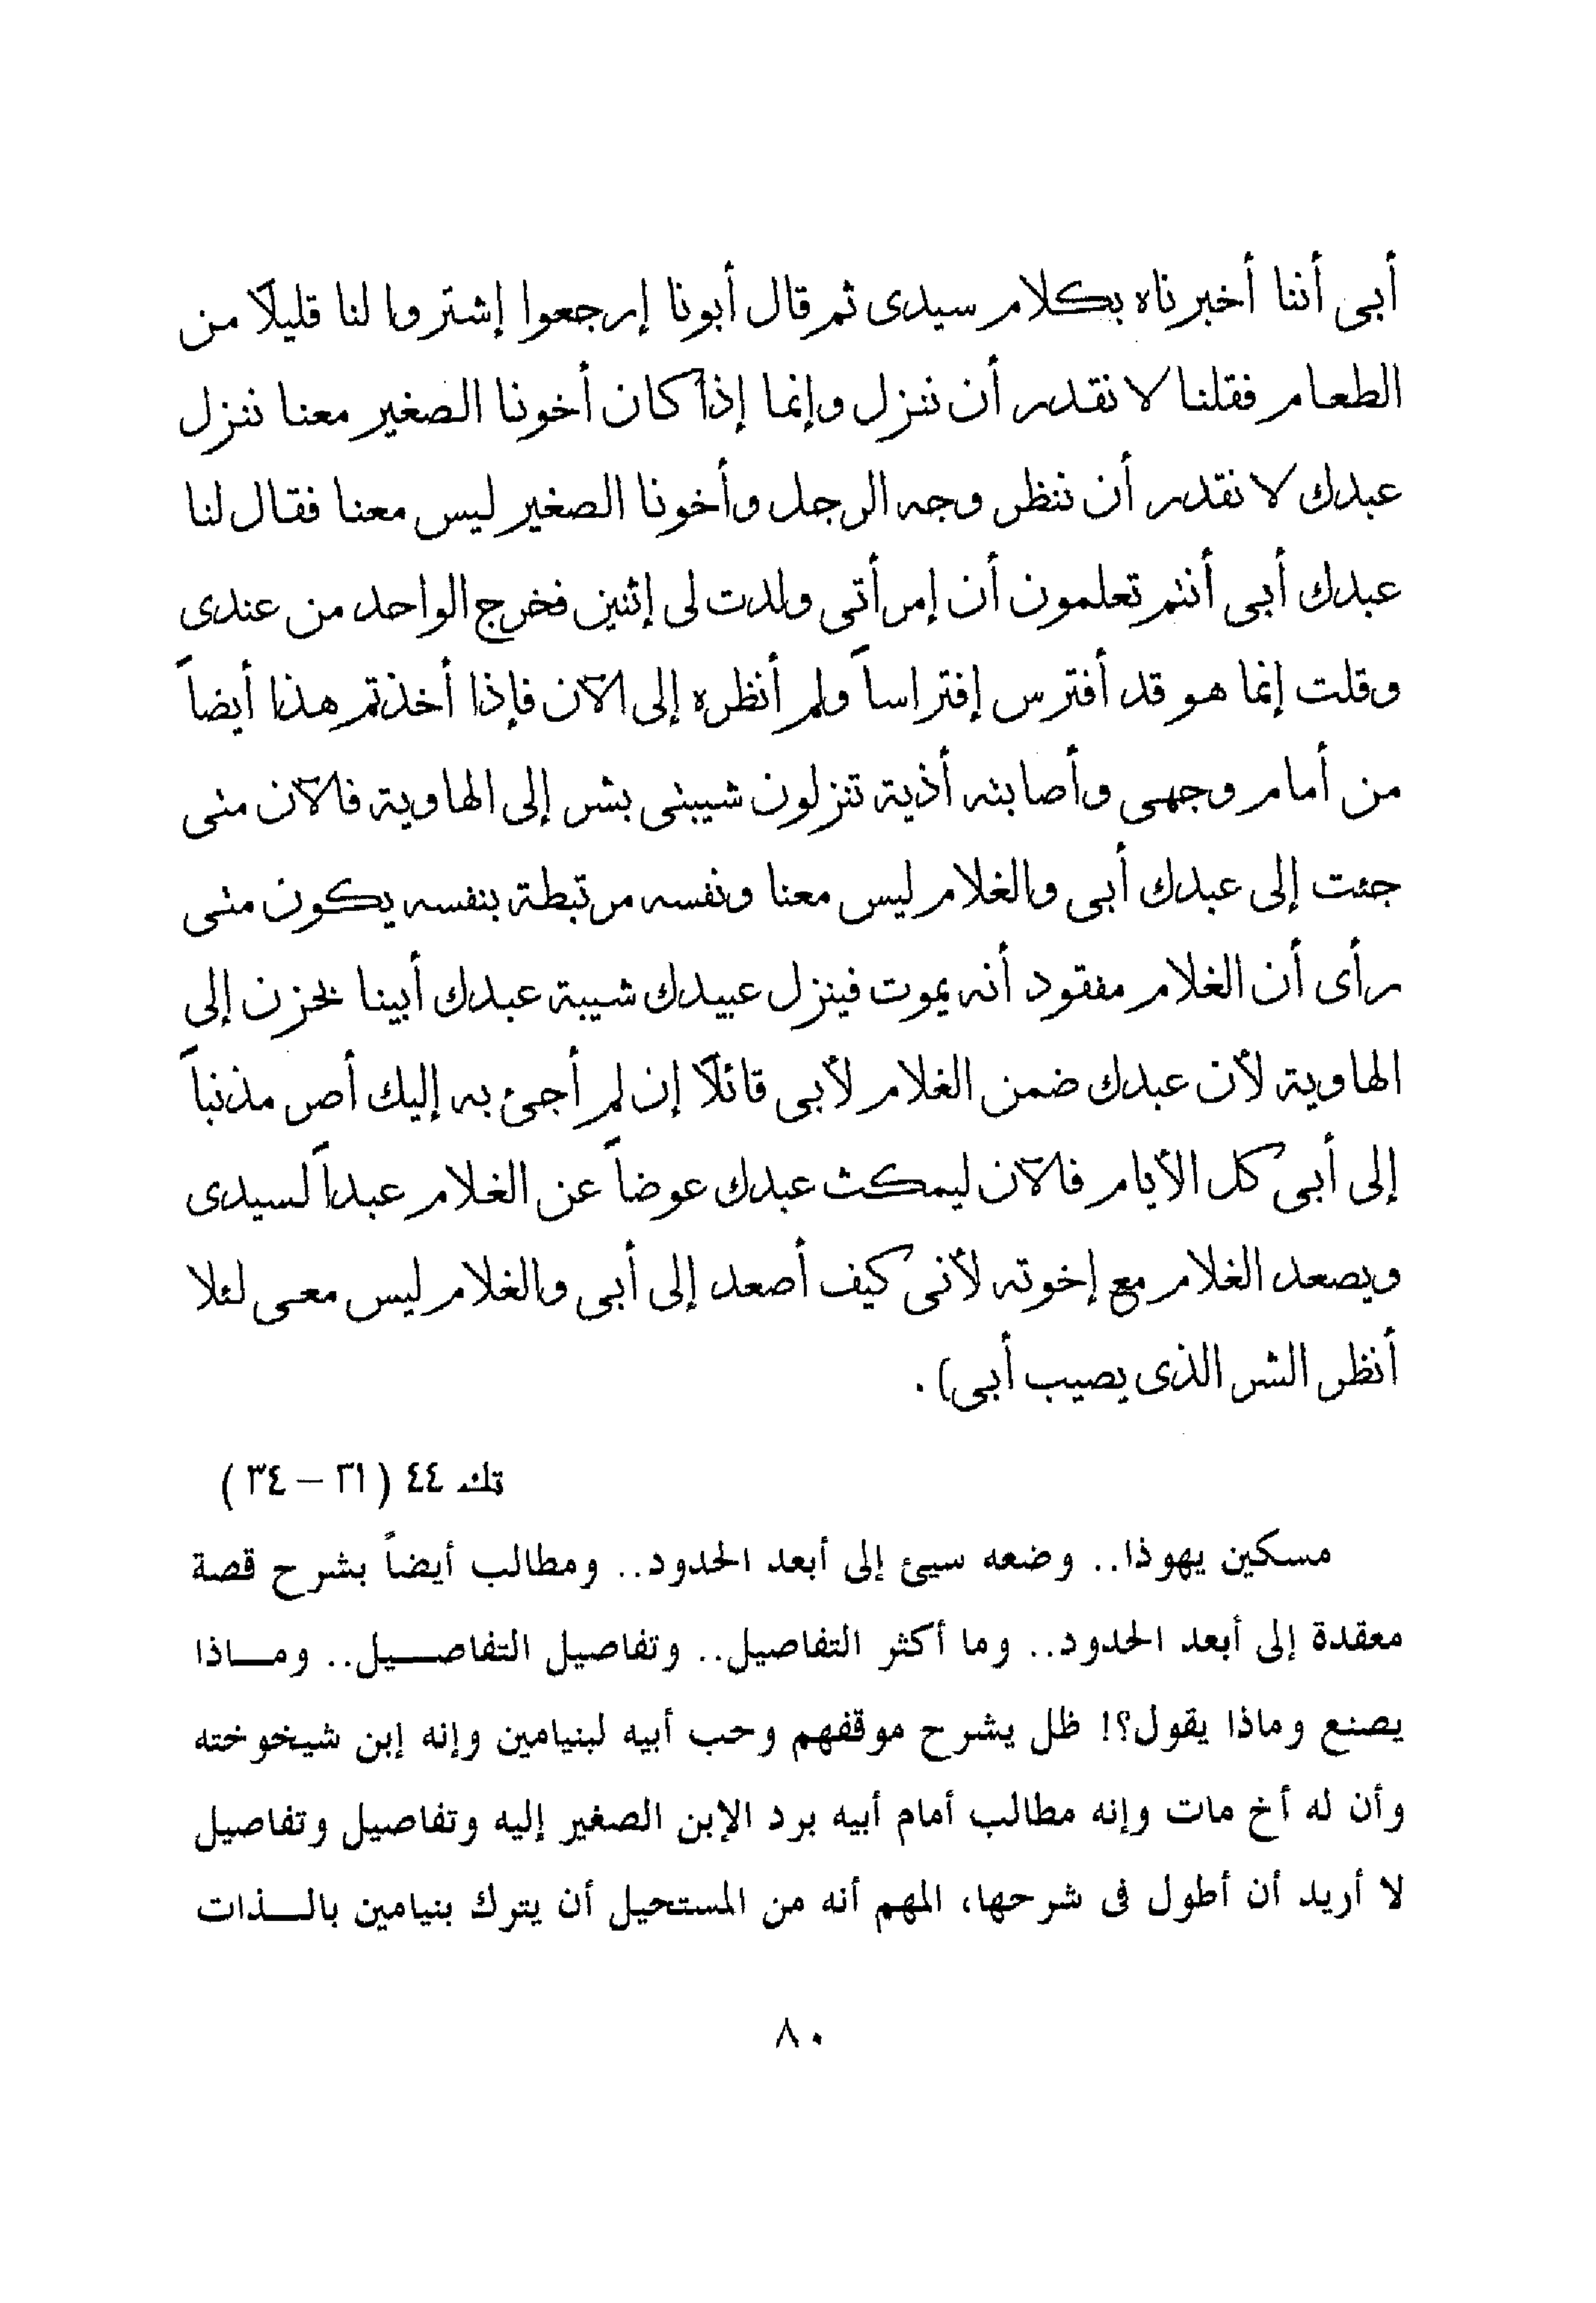 أبى أننا أخبرناه بكلام سيدى ثم قال أبونا إرجعوا إشتروا لنا قليلاً من
الطعام فقلنا لا نقدر أن ننزل وإنما إذا كان أخونا الصغير معنا ننزل
عبدك لا نقدر أن ننظر وجه الرجل وأخونا الصغير ليس معنا فقال لنا
عبدك أبى أنتم تعلمون أن إمرأتى ولدت لى إثنين فخرج الواحد من عندى
وقلت إنما هو قد أفترس إفتراساً ولم أنظره إلى الآن فإذا أخذتم هذا أيضاً
من أمام وجهى وأصابته أذية تنزلون شيبتى بشر إلى الهاوية فالآن متى
جئت إلى عبدك أبى والغلام ليس معنا ونفسه مرتبطة بنفسه يكون متى
رأى أن الغلام مفقود أنه يموت فينزل عبيدك شيبة عبدك أبينا بحزن إلى
الهاوية لأن عبدك ضمن الغلام لأبى قائلاً إن لم أجئ به إليك أصر مذنباً
إلى أبى كل الأيام فالآن ليمكث عبدك عوضاً عن الغلام عبداً لسيدى
ويصعد الغلام مع إخوته لأنى كيف أصعد إلى أبى والغلام ليس معى لئلا
أنظر الشر الذى يصيب أبى) .
تك ٤٤ ( ٢١ – ٣٤ )
مسكين يهوذا.. وضعه سيئ إلى أبعد الحدود.. ومطالب أيضاً بشرح قصة
معقدة إلى أبعد الحدود.. وما أكثر التفاصيل.. وتفاصيل التفاصــيل.. ومــاذا
يصنع وماذا يقول؟! ظل يشرح موقفهم وحب أبيه لبنيامين وإنه إبن شيخوخته
وأن له أخ مات وإنه مطالب أمام أبيه برد الإبن الصغير إليه وتفاصيل وتفاصيل
لا أريد أن أطول فى شرحها، المهم أنه من المستحيل أن يترك بنيامين بالــذات
٨٠